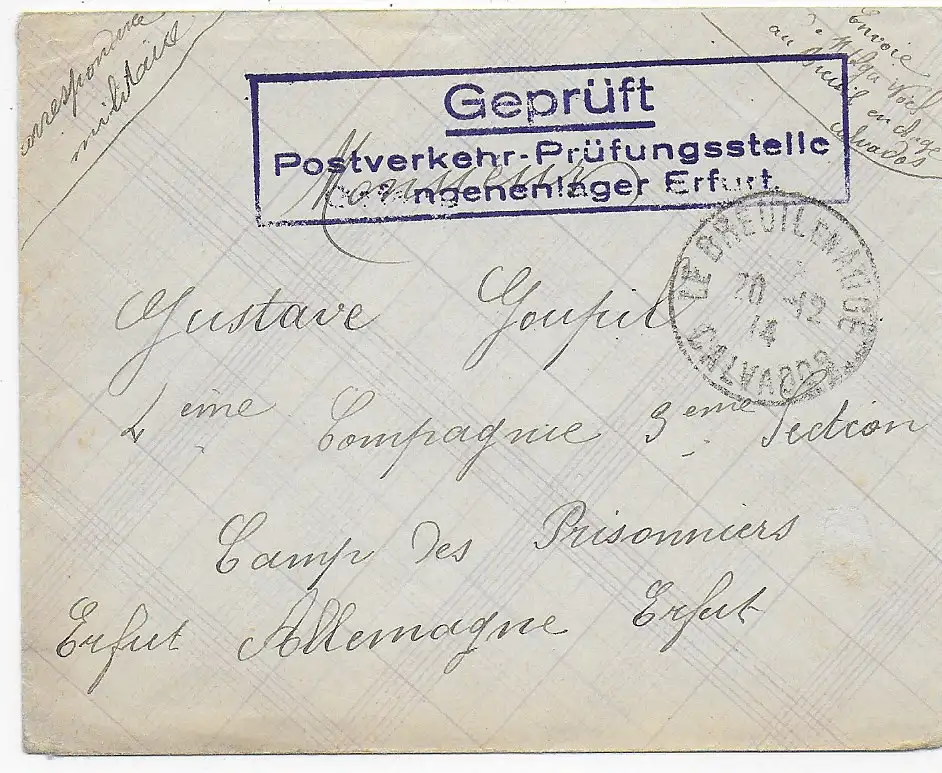 correspondance
militaire
Envoie
au Breuil en Auge
Calvados
Geprüft
Postverkehr-Prüfungsstelle
ngenenlager Erfurt.
Monsieur
LE BREUIL EN AUGE
20 -12
14
CALVADOS
Gustave Goupil
4eme Compagnie 3eme Section
Camp des Prisonniers
Erfut Allemagne Erfut